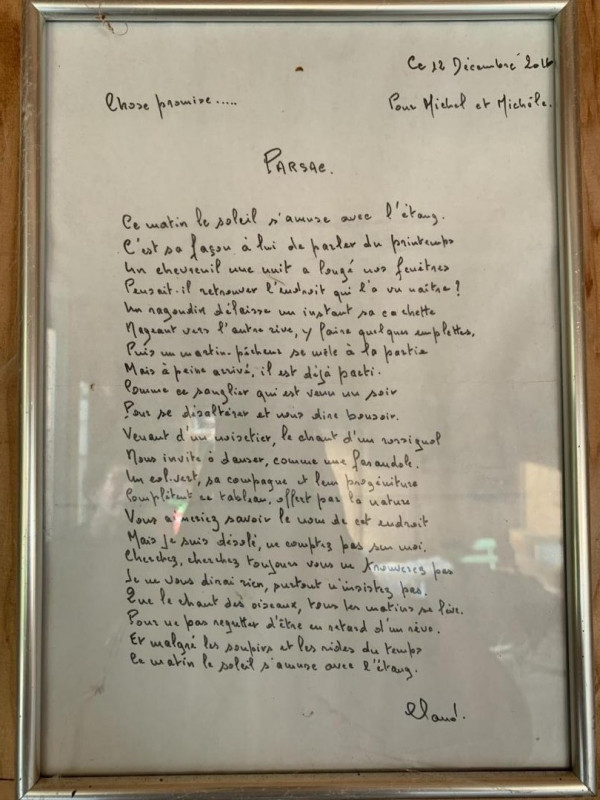 Ce 12 Décembre 2016
Chose promise.....
Pour Michel et Michèle.
PARSAC.
Ce matin le soleil s'amuse avec l'étang.
C'est sa façon à lui de parler du printemps
Un chevreuil une nuit a longé nos fenêtres
Pensait-il retrouver l'endroit qui l'a vu naître ?
Un ragondin délaisse un instant sa cachette
Nageant vers l'autre rive, y faire quelques emplettes.
Puis un martin-pêcheur se mêle à la partie
Mais à peine arrivé, il est déjà parti.
Comme ce sanglier qui est venu un soir
Pour se désaltérer et nous dire bonsoir.
Venant d'un noisetier, le chant d'un rossignol
Nous invite à danser, comme une farandole.
Un col-vert, sa compagne et leur progéniture
Complètent ce tableau, offert par la nature
Vous aimeriez savoir le nom de cet endroit
Mais je suis désolé, ne comptez pas sur moi.
Cherchez, cherchez toujours vous ne trouverez pas
Je ne vous dirai rien, surtout n'insistez pas.
Que le chant des oiseaux, tous les matins se lève.
Pour ne pas regretter d'être en retard d'un rêve.
Et malgré les soupirs et les rides du temps
Ce matin le soleil s'amuse avec l'étang.